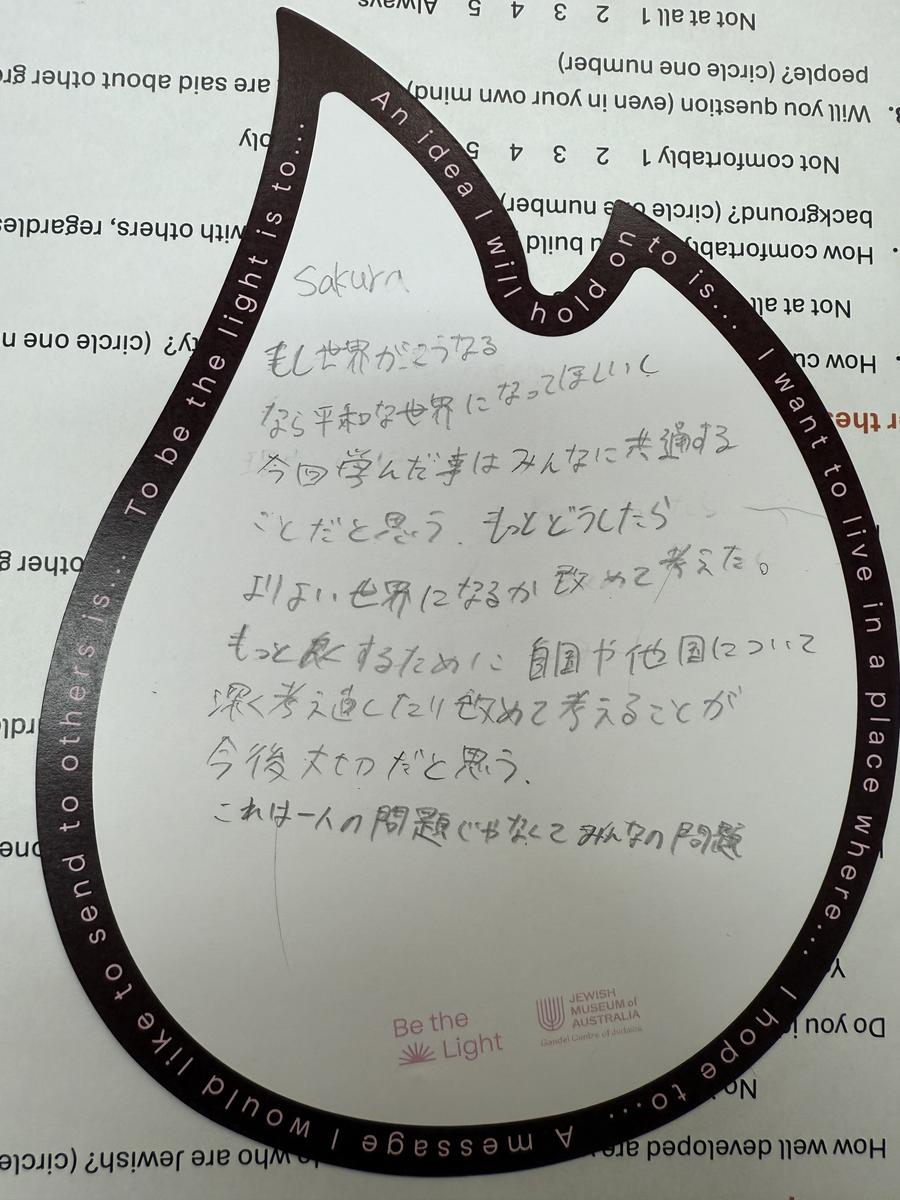 Sakura
もし世界がこうなる
なら平和な世界になってほしいし
今回学んだ事はみんなに共通する
ことだと思う. もっとどうしたら
よりよい世界になるか改めて考えた。
もっと良くするために自国や他国について
深く考え直したり改めて考えることが
今後大切だと思う.
これは一人の問題じゃなくてみんなの問題
To be the light is to...
An idea I will hold on to is...
I want to live in a place where...
I hope to...
A message I would like to send to others is...
Be the Light
JEWISH
MUSEUM of
AUSTRALIA
Gandel Centre of Judaica
How well developed are
who are Jewish? (circle
Do you
No
How cu
Not at all
How comfortably
u build
with others, regardles
background? (circle one number)
Not comfortably 1 2 3 4 5
bly
Will you question (even in your own mind)
are said about other gr
people? (circle one number)
Not at all 1 2 3 4 5 Always
ty? (circle one n
other g